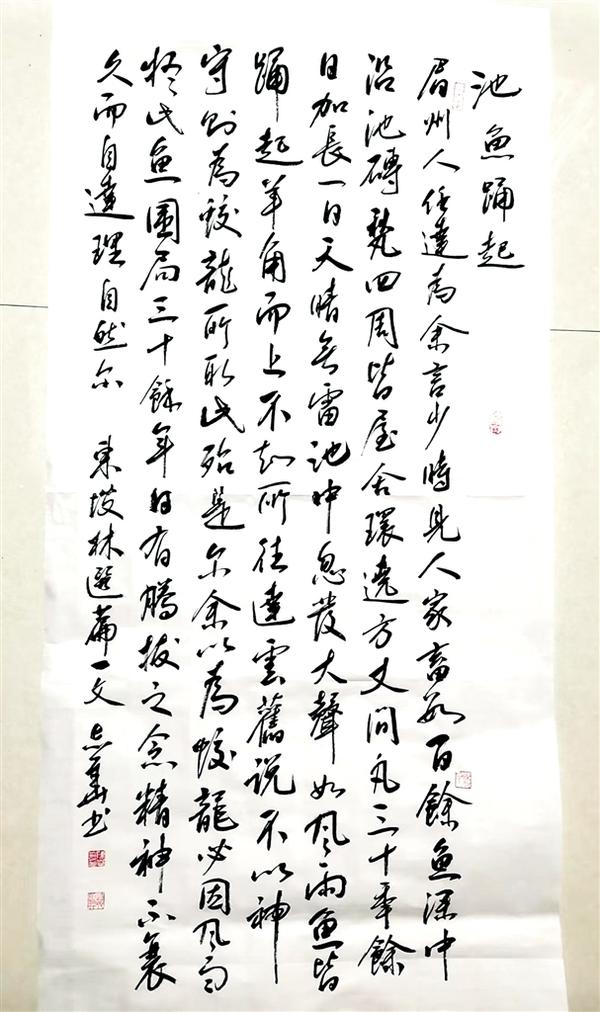 池魚踊起
眉州人任達為余言少時見人家畜數百餘魚深中
沿池磚甃四周皆屋舍環遶方丈間凡三十年餘
日加長一日天晴無雷池中忽發大聲如風雨魚皆
踊起羊角而上不知所往達雲舊説不以神
守則為蛟龍所取此殆是尔余以為蛟龍必因风雨
疑此魚圉局三十餘年日有騰拔之念精神不衰
久而自達理自然尔 東坡林選篇一文 书